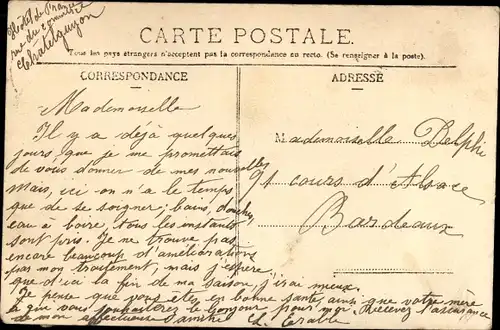 Hôtel de France
rue du Commerce
Chatelguyon
CARTE POSTALE
Tous les pays étrangers n'acceptent pas la correspondance au recto. (Se renseigner à la poste).
CORRESPONDANCE
ADRESSE
Mademoiselle
Il y a déjà quelques
jours, que je me promettais
de vous donner de mes nouvelles
mais, ici on n'a le temps
que de se soigner; bains, douches,
eau à boire, tous les instants
sont pris. Je ne trouve pas
encore beaucoup d'améliorations
par mon traitement, mais j'espère
que d'ici la fin de ma saison j'irai mieux.
Je pense que vous êtes en bonne santé, ainsi que votre mère
à qui vous souhaiterez le bonjour pour moi. Recevez l'assurance
de mon affectueuse amitié
Mademoiselle Delphi
91 cours d'Alsace
Bordeaux